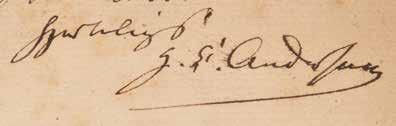 hjerteligst
H. C. Andersen